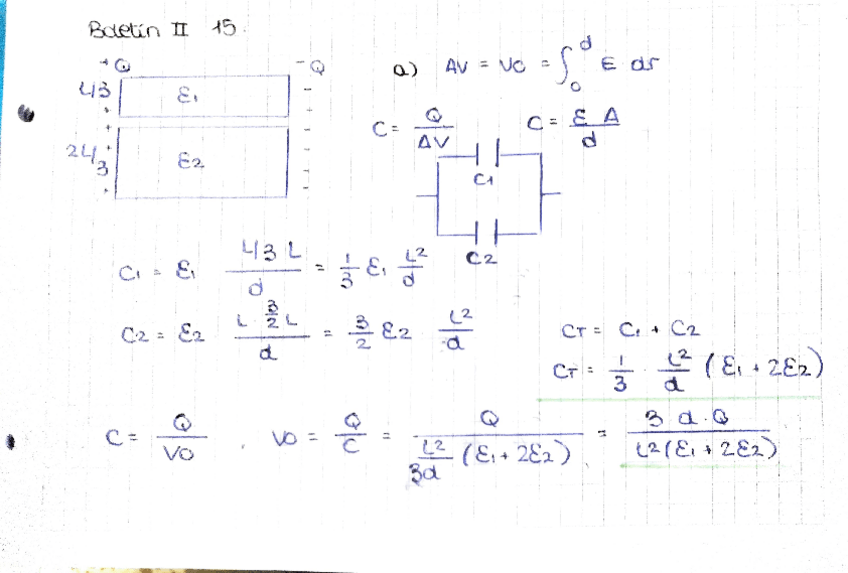 Boletín II 15.
+Q -Q
L/3 ε₁
2L/3 ε₂
a) ΔV = V0 = ∫₀ᵈ E dr
C = Q/ΔV C = ε A/d
C1
C2
C1 = ε₁ L/3 L/d = 1/3 ε₁ L²/d
C2 = ε2 L 3/2 L/d = 3/2 ε2 L²/d
CT = C1 + C2
CT = 1/3 · L²/d (ε₁ + 2ε2)
C = Q/V0 , V0 = Q/C = Q/(L²/3d (ε₁ + 2ε2)) = 3 d·Q/(L²(ε₁ + 2ε2))